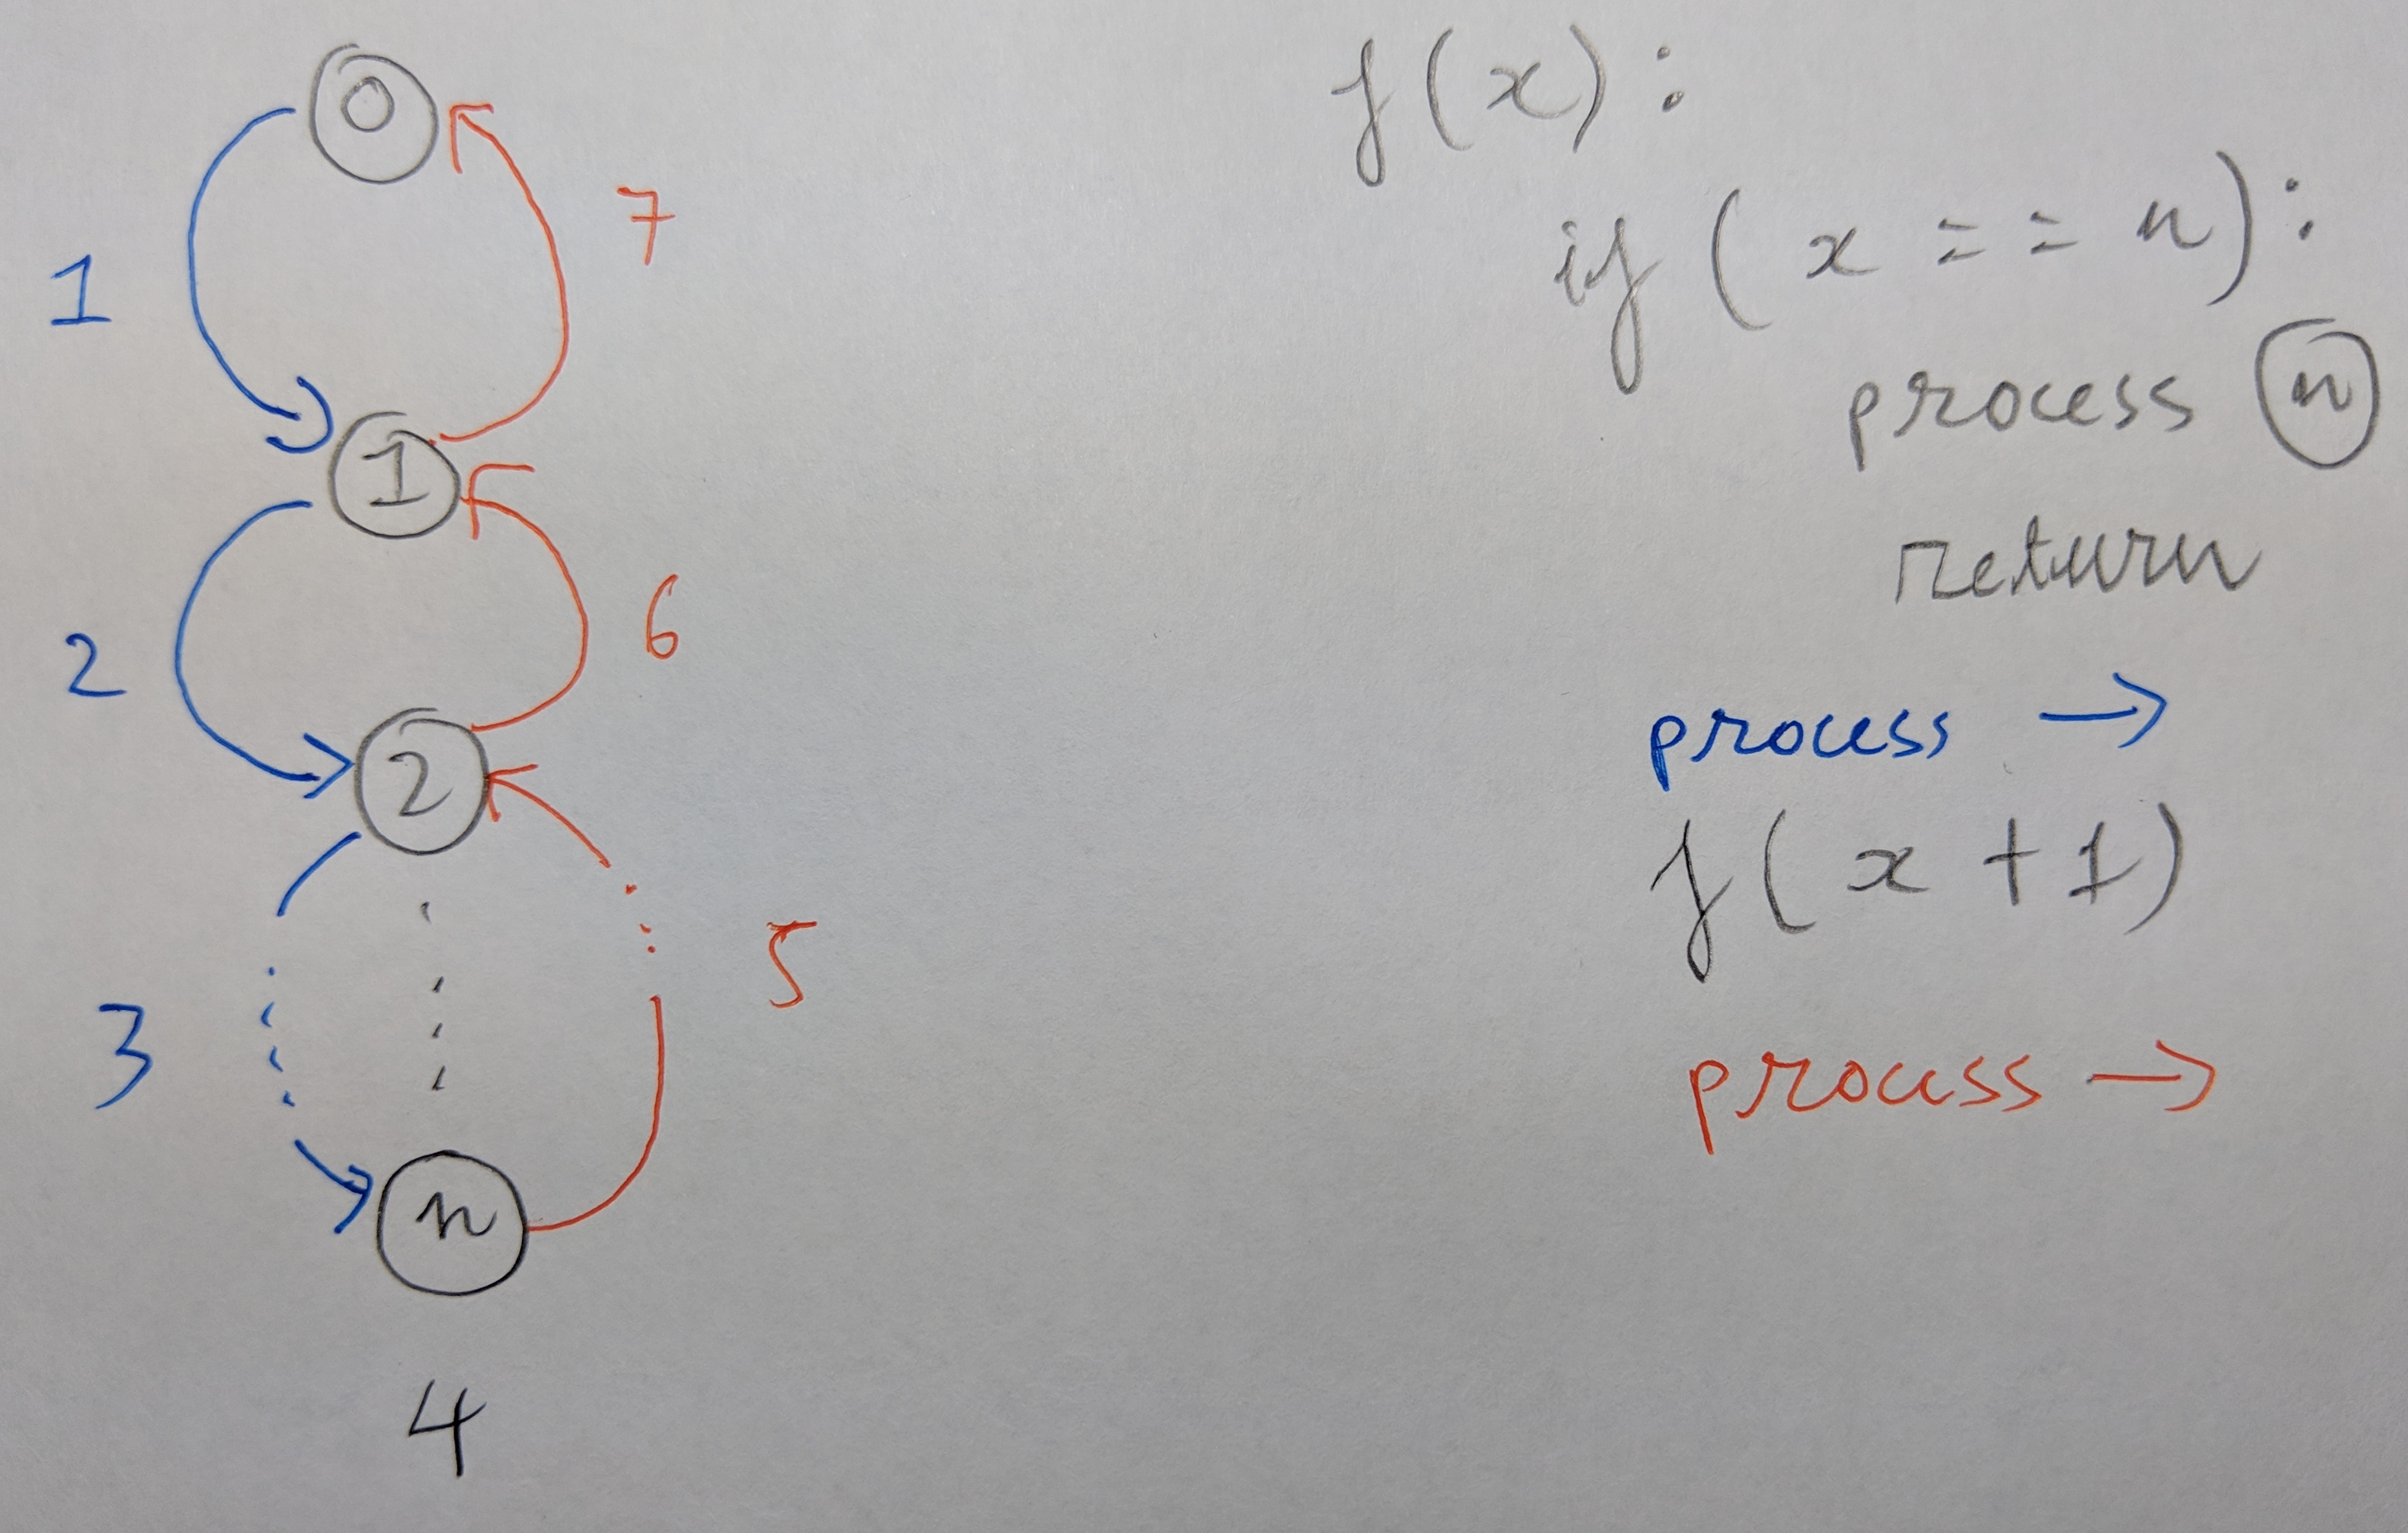 0
7
1
1
6
2
2
5
3
n
4
f(x):
if (x == n):
process n
return
process →
f(x+1)
process →